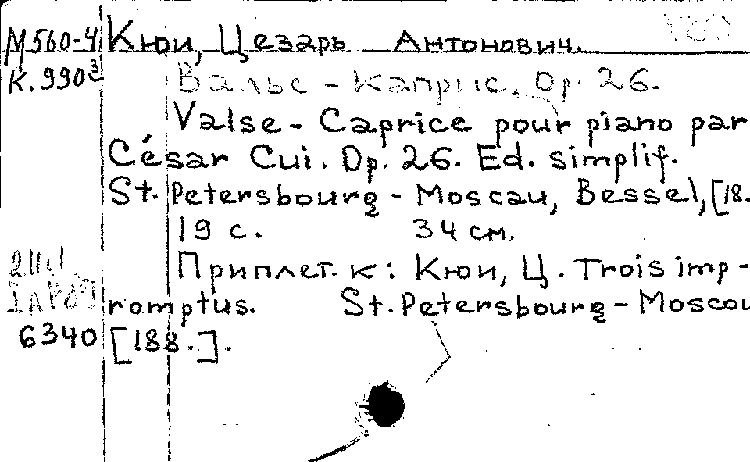 М560-4 Кюи, Цезарь Антонович.
К.990³ Вальс - Каприс. Op. 26.
Valse - Caprice pour piano par
César Cui. Op. 26. Ed. simplif.
St. Petersbourg - Moscau, Bessel, [18.
19 с. 34 см.
Приплет. к: Кюи, Ц. Trois imp-
romptus. St. Petersbourg - Moscou
6340 [188.].